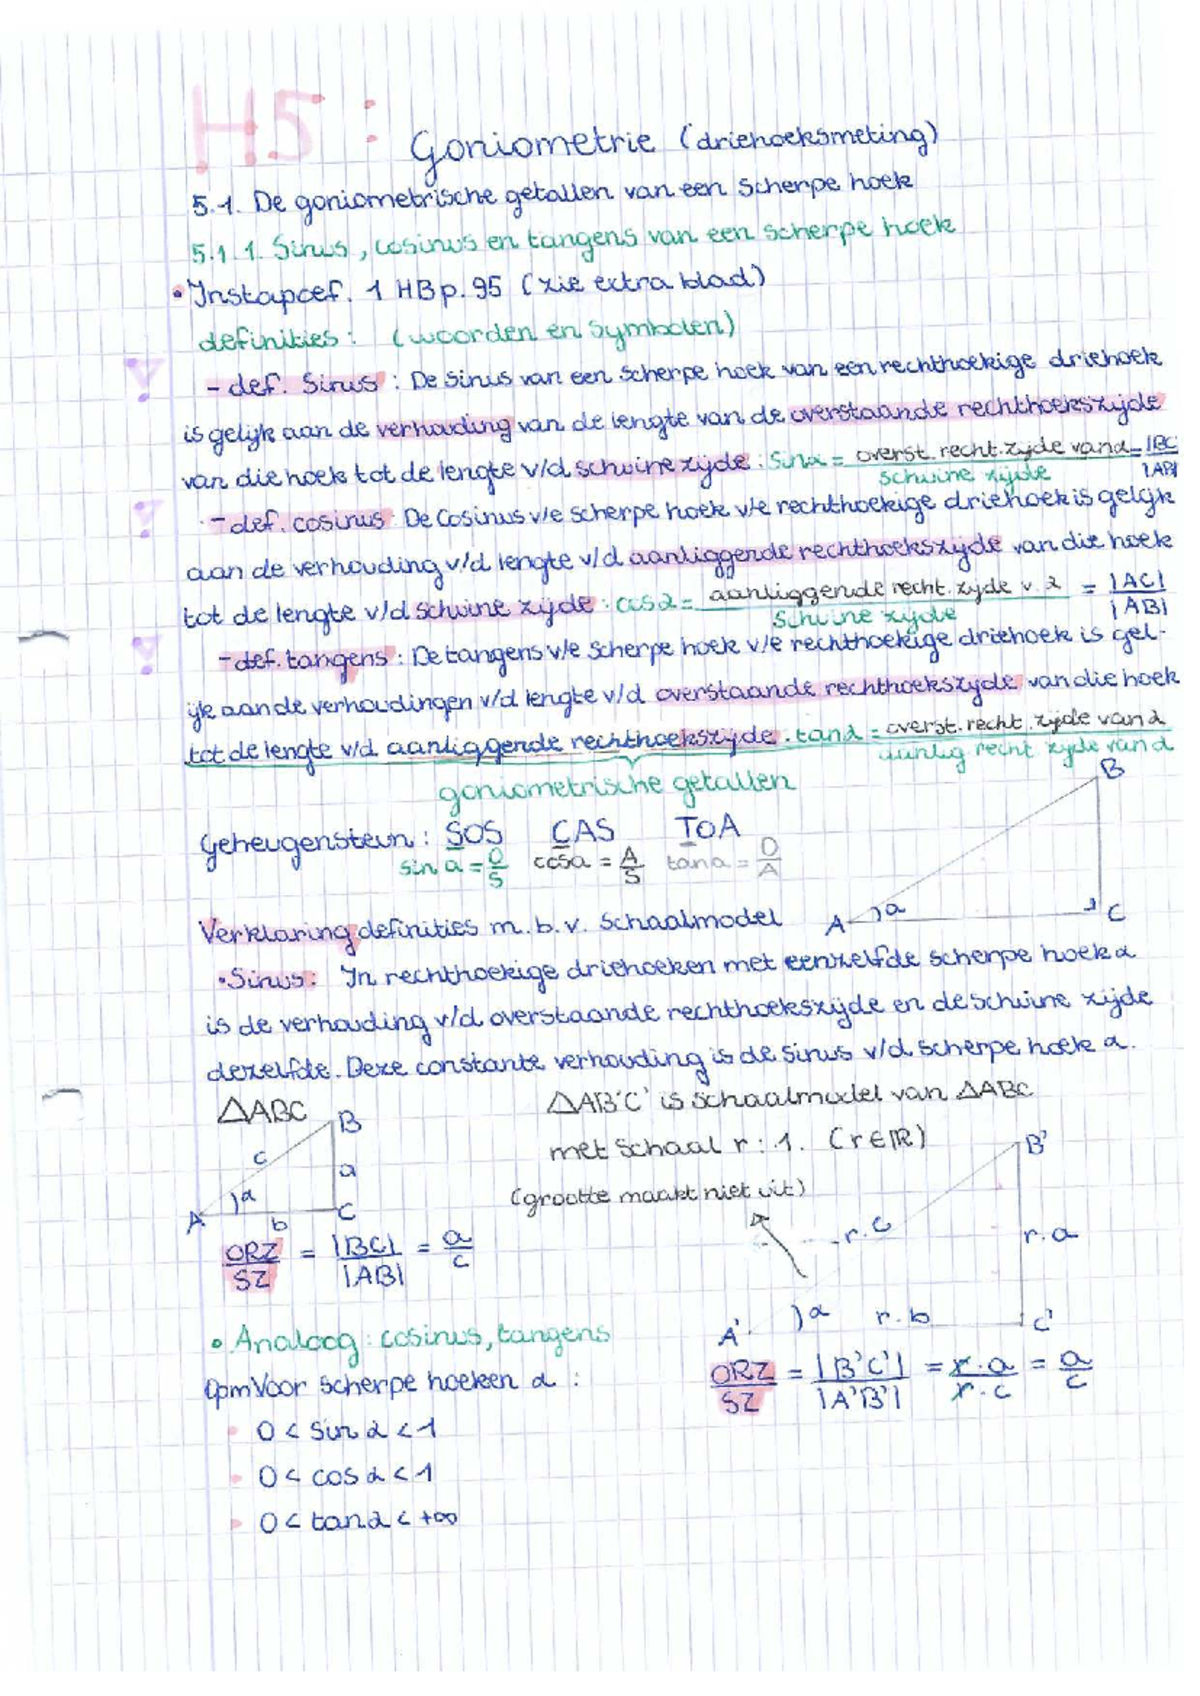 H5:
Goniometrie (driehoeksmeting)
5.1. De goniometrische getallen van een scherpe hoek
5.1.1. Sinus, cosinus en tangens van een scherpe hoek
• Instapoef. 1 HB p. 95 (zie extra blad)
definities: (woorden en symbolen)
- def. Sinus: De sinus van een scherpe hoek van een rechthoekige driehoek
is gelijk aan de verhouding van de lengte van de overstaande rechthoekszijde
van die hoek tot de lengte v/d schuine zijde: sinα = overst. recht. zijde van α / schuine zijde = |BC| / |AB|
- def. cosinus: De Cosinus v/e scherpe hoek v/e rechthoekige driehoek is gelijk
aan de verhouding v/d lengte v/d aanliggende rechthoekszijde van die hoek
tot de lengte v/d schuine zijde: cosα = aanliggende recht. zijde v. α / Schuine zijde = |AC| / |AB|
- def. tangens: De tangens v/e scherpe hoek v/e rechthoekige driehoek is gel-
ijk aan de verhoudingen v/d lengte v/d overstaande rechthoekszijde van die hoek
tot de lengte v/d aanliggende rechthoekszijde. tanα = overst. recht. zijde van α / aanlig recht zijde van α
goniometrische getallen
B
Geheugensteun: SOS CAS TOA
sin α = O/S cosα = A/S tanα = O/A
A α C
Verklaring definities m.b.v. schaalmodel
• Sinus: In rechthoekige driehoeken met eenzelfde scherpe hoek α
is de verhouding v/d overstaande rechthoekszijde en de schuine zijde
dezelfde. Deze constante verhouding is de sinus v/d scherpe hoek α.
△ABC △AB'C' is schaalmodel van △ABC
B met Schaal r:1. (r∈ℝ) B'
c a (grootte maakt niet uit)
α
A b C r.c r.a
ORZ/SZ = |BC|/|AB| = a/c
α r.b
A' C'
• Analoog: cosinus, tangens
ORZ/SZ = |B'C'|/|A'B'| = r.a/r.c = a/c
Opm Voor scherpe hoeken α:
0 < sin α < 1
0 < cos α < 1
0 < tan α < +∞